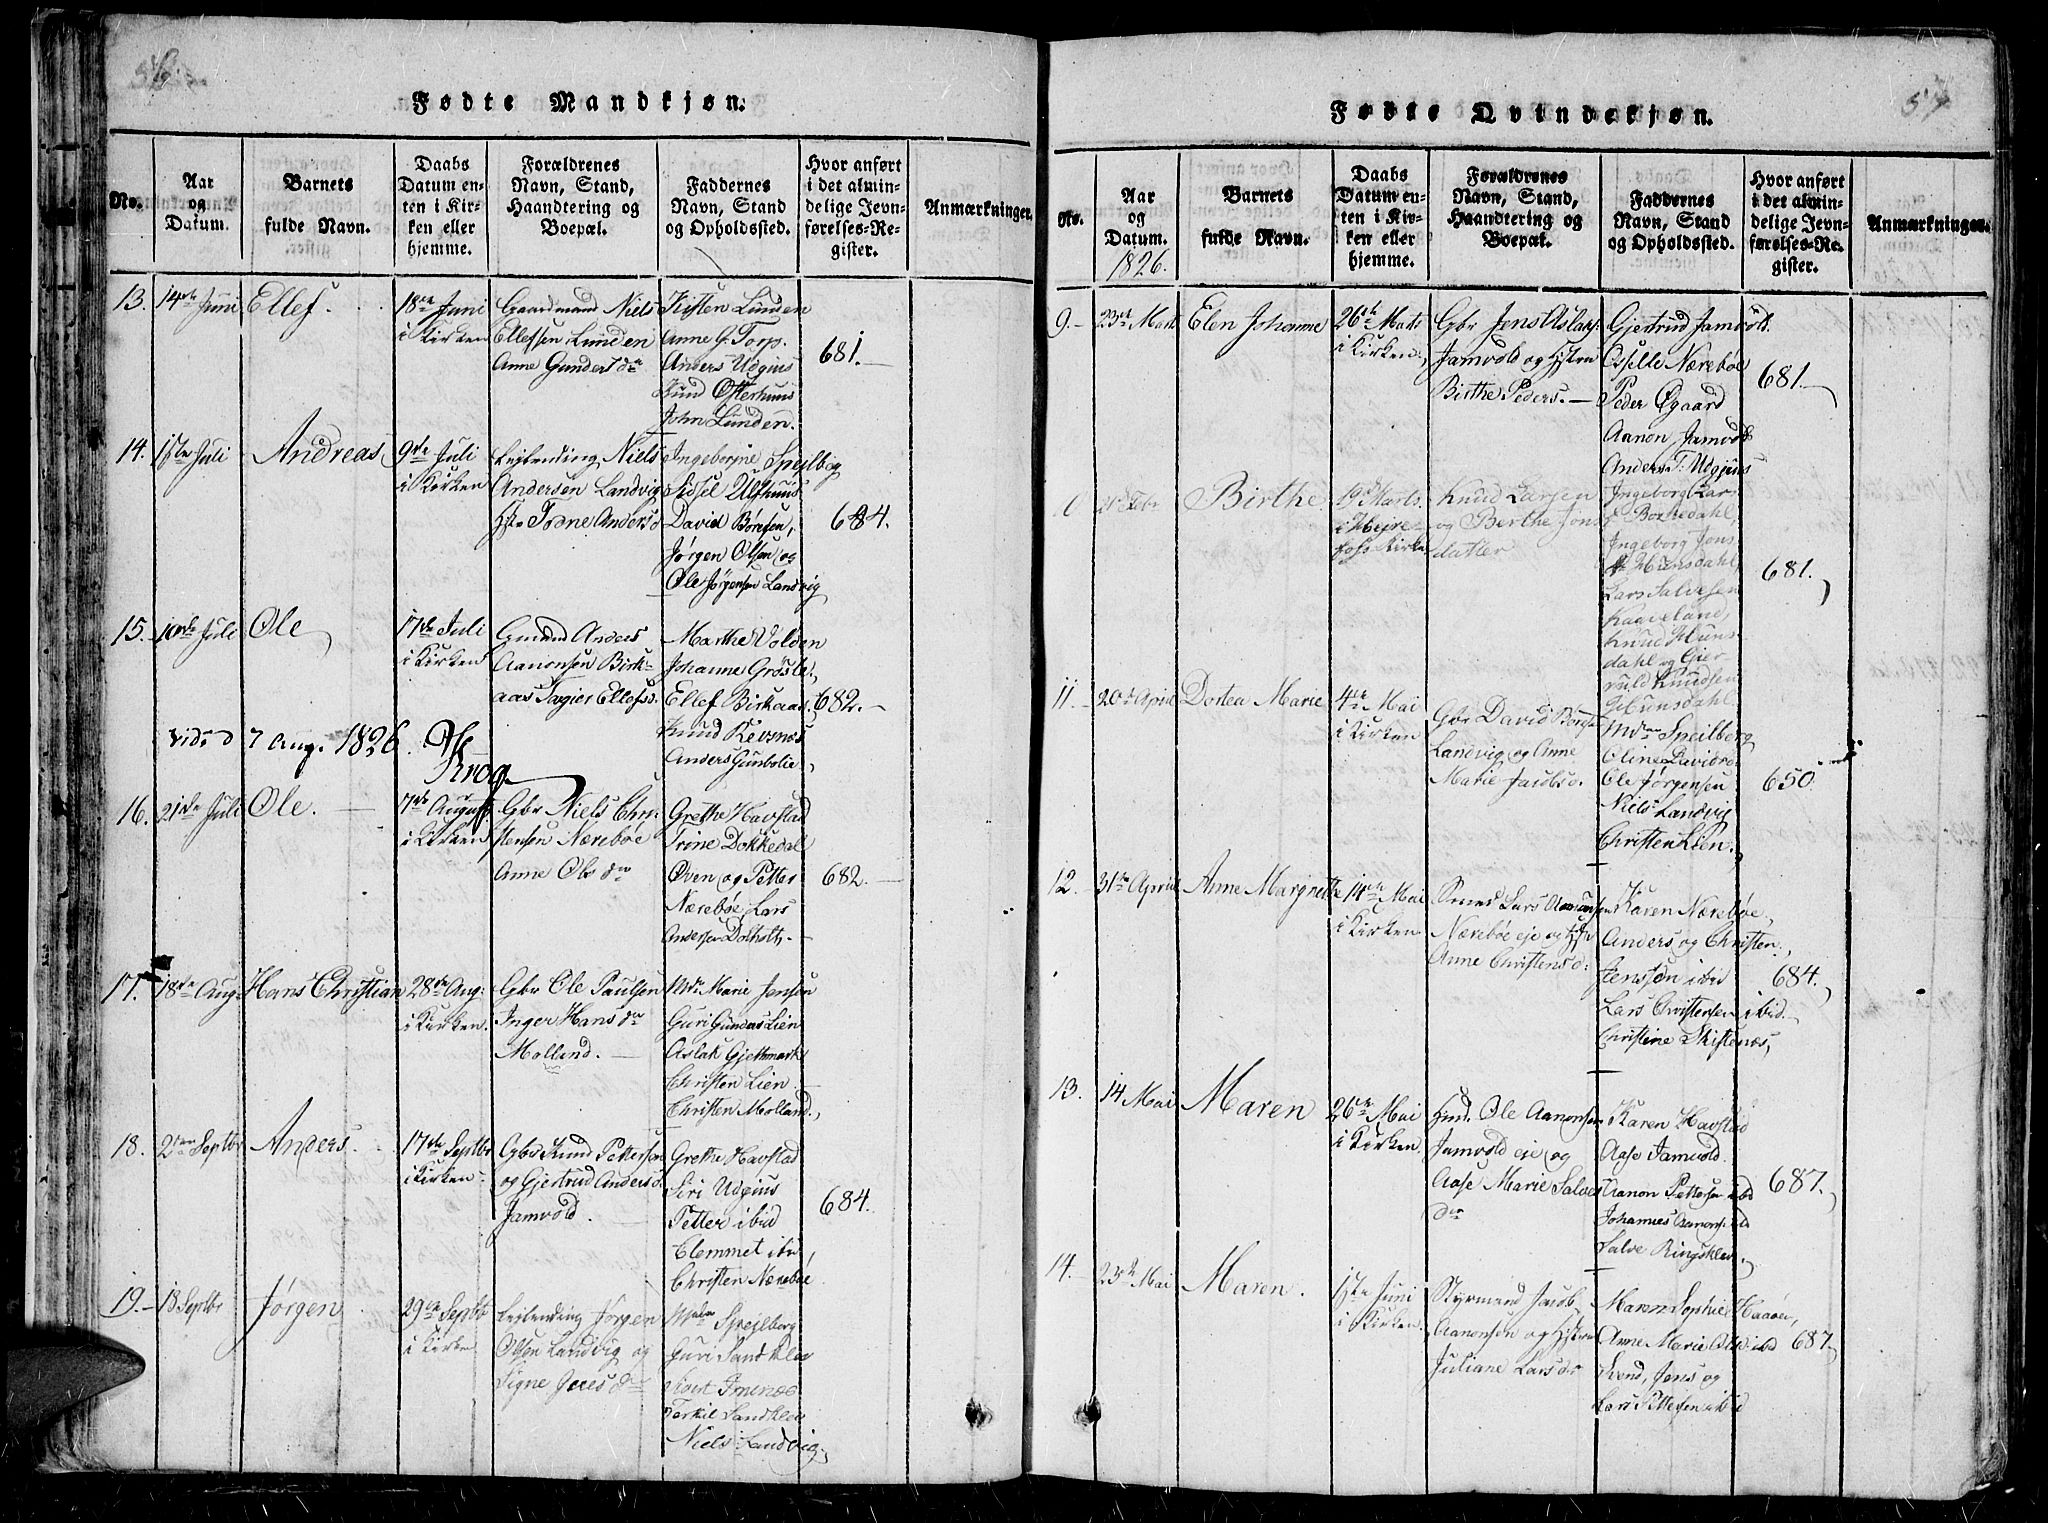 56.
Fødte Mandkjøn.
No.
Aar
og
Datum.
Barnets
fulde Navn.
Daabs
Datum en-
ten i Kir-
ken eller
hjemme.
Forældrenes
Navn, Stand,
Haandtering og
Boepæl.
Faddernes
Navn, Stand
og Opholdssted.
Hvor anført
i det almin-
delige Jevn-
førelses-Re-
gister.
Anmærkninger.
13. 14de Juni Ellef.
18de Juni
i Kirken
Gaardmand Niels
Ellefsen Lunden
Anne Gundersd
Kisten Lunden
Anne G. Torp.
Anders Udgius
Knud Osterhuus
John Lunden.
681.
14. 1ste Juli Andreas
9de Juli
i Kirken
Leilending Niels
Andersen Landvig
Hst Todne Andersd
Ingeborjne Spejlbog
Sidsel Ulfhuus
David Børesen,
Jørgen Olsen og
Ole Jørgensen Landvig
684.
15. 10de Juli Ole
17de Juli
i Kirken
Gmand Anders
Aanonsen Birk-
aas Tagier Ellefsd.
Marthe Volden
Johanne Grosle,
Ellef Birkaas,
Knud Revsnes
Anders Gunbolie,
682.
vidi d 7 Aug. 1826.
Krog.
16. 21de Juli Ole.
7de August
i Kirken
Gbr Niels Chri-
stensen Nærebøe
Anne Olsdr
Grethe Havstad
Trine Dokkedal
Oven og Petter
Nærebøe Lars
Andersen Dolholt,
682.
17. 18de Aug. Hans Christian
28de Aug:
i Kirken.
Gbr Ole Paulsen
Inger Hansdr
Molland.
Mdr Marie Jensen
Guri Gunders Lien
Aslak Gjethmark
Christen Lien
Christen Molland,
18. 2den Septbr Anders.
17de Septbr
i Kirken.
Gbr Knud Pettersen
og Gjertrud Andersd.
Jamvold.
Grethe Havstad
Siri Udgius
Petter ibid
Clemmet ibr
Christen Nærebøe
684.
19. 18 Septbr Jørgen
29de Septbr
i Kirken
Leilending Jørgen
Olsen Landvig og
Signe Jensdr
Mdm Spejlberg
Guri Sandklev
Terkil Sandklev
Niels Landvig.
57
Fødte Qvindekjøn.
No.
Aar
og
Datum.
1826.
Barnets
fulde Navn.
Daabs
Datum en-
ten i Kir-
ken eller
hjemme.
Forældrenes
Navn, Stand,
Haandtering og
Boepæl.
Faddernes
Navn, Stand
og Opholdssted.
Hvor anført
i det almin-
delige Jevn-
førelses-Re-
gister.
Anmærkninger.
9. 23de Marts Elen Johanne
26de Marts
i Kirken.
Gbr Jens Aslaks:
Jamvold og Hsten
Birthe Peders.
Gjertrud Jamvold.
Osselle Nærebøe
Peder Øgaard
Aanon Jamvold
Anders T. Udgius
681.
Febr Birthe
19d Marts
i Heire-
fos Kirke
Knud Larsen
og Berthe Jons
datter
Ingeborg Lars
Borkedahl,
Ingeborg Jons
Hunsdahl,
Lars Salvesen
Kaaveland,
Knud Huns-
dahl og Gier-
uld Knudsen
Hunsdahl.
681.
11. 20de April Dortea Marie
4de Mai
i Kirken
Gbr David Børes
Landvig og Anne
Marie Jacobsd.
Mdm Speilberg
Oline Davidsd.
Ole Jørgensen
Niels Landvig
Christen Lien.
650.
12. 31te April Anne Margrethe
14de Mai
i Kirken
Smed Lars Aamundsen
Nærebøe eje og Hstr
Anne Christensd:
Karen Nærebøe,
Anders og Christen
Jenssøn ibid
Lars Christensen ibid.
Christine Skiftenæs,
684.
13. 14 Mai Maren
26de Mai
i Kirken
Hmd. Ole Aanonsen
Jamvold eje og
Aase Marie Salves
dr
Karen Havstad
Aase Jamvold.
Aanon Pettersen ibid
Johannes Aanons. ibid
Salve Ringsklev.
687.
14. 23de Mai Maren.
1ste Juni
i Kirken
Styrmand Jacob
Aanonsøn og Hstrue
Juliane Larsdr
Maren Sophie Haaøen,
Anne Marie Ols ibid
Svend, Jens og
Lars Pettersen ibid
687.